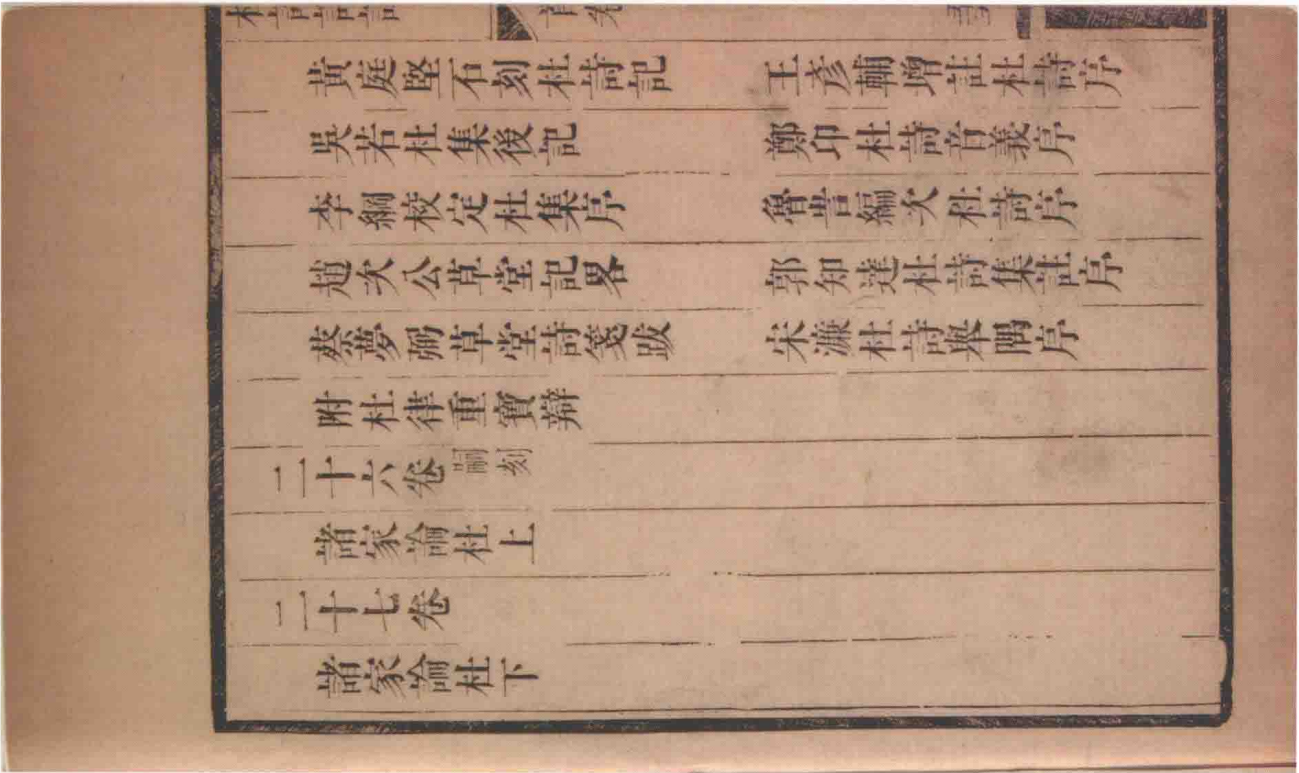 黃庭堅石刻杜詩記　王彥輔增註杜詩序
吳若杜集後記　鄭印杜詩音義序
李綱校定杜集序　魯訔編次杜詩序
趙次公草堂記畧　郭知達杜詩集註序
蔡夢弼草堂詩箋跋　宋濂杜詩舉隅序
附杜律重寶辯
二十六卷 嗣刻
諸家論杜上
二十七卷
諸家論杜下